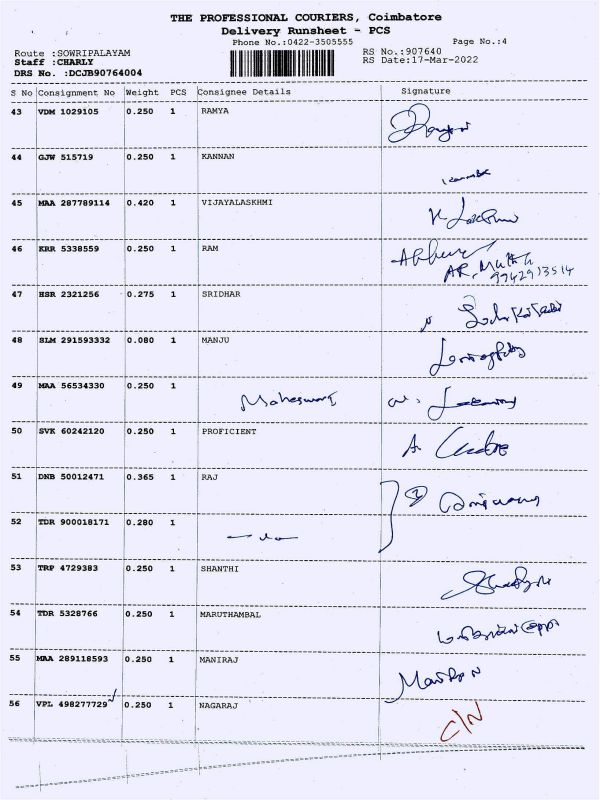 THE PROFESSIONAL COURIERS, Coimbatore
Delivery Runsheet - PCS
Phone No.:0422-3505555
Page No.:4
Route :SOWRIPALAYAM
RS No.:907640
Staff :CHARLY
RS Date:17-Mar-2022
DRS No. :DCJB90764004
S No Consignment No Weight PCS Consignee Details Signature
43 VDM 1029105 0.250 1 RAMYA
44 GJW 515719 0.250 1 KANNAN
45 MAA 287789114 0.420 1 VIJAYALASKHMI
46 KRR 5338559 0.250 1 RAM
AR. Muth
9942913514
47 HSR 2321256 0.275 1 SRIDHAR
48 SLM 291593332 0.080 1 MANJU
49 MAA 56534330 0.250 1
50 SVK 60242120 0.250 1 PROFICIENT
51 DNB 50012471 0.365 1 RAJ
52 TDR 900018171 0.280 1
53 TRP 4729383 0.250 1 SHANTHI
54 TDR 5328766 0.250 1 MARUTHAMBAL
55 MAA 289118593 0.250 1 MANIRAJ
56 VPL 498277729 0.250 1 NAGARAJ C/N